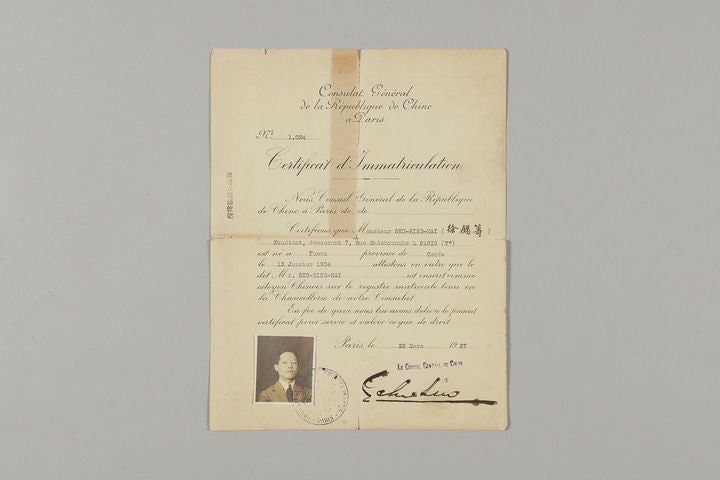 Consulat Général
de la République de Chine
à Paris
N° 1.094
Certificat d'Immatriculation
Nous Consul Général de la République
de Chine à Paris etc etc
Certifions que Monsieur SEU-RING-HAI (徐嶺)
Etudiant, demeurant 7, Rue Malebranche à PARIS (V°)
est né à Fusan province de Corée
le 13 Janvier 1904 attestons en outre que le
dit Mr. SEU-RING-HAI est inscrit comme
citoyen Chinois sur le registre matricule tenu en
la Chancellerie de notre Consulat.
En foi de quoi nous lui avons délivré le présent
certificat pour servir et valoir ce que de droit
Paris, le 22 Mars 1927
LE CONSUL GÉNÉRAL DE CHINE
PARIS